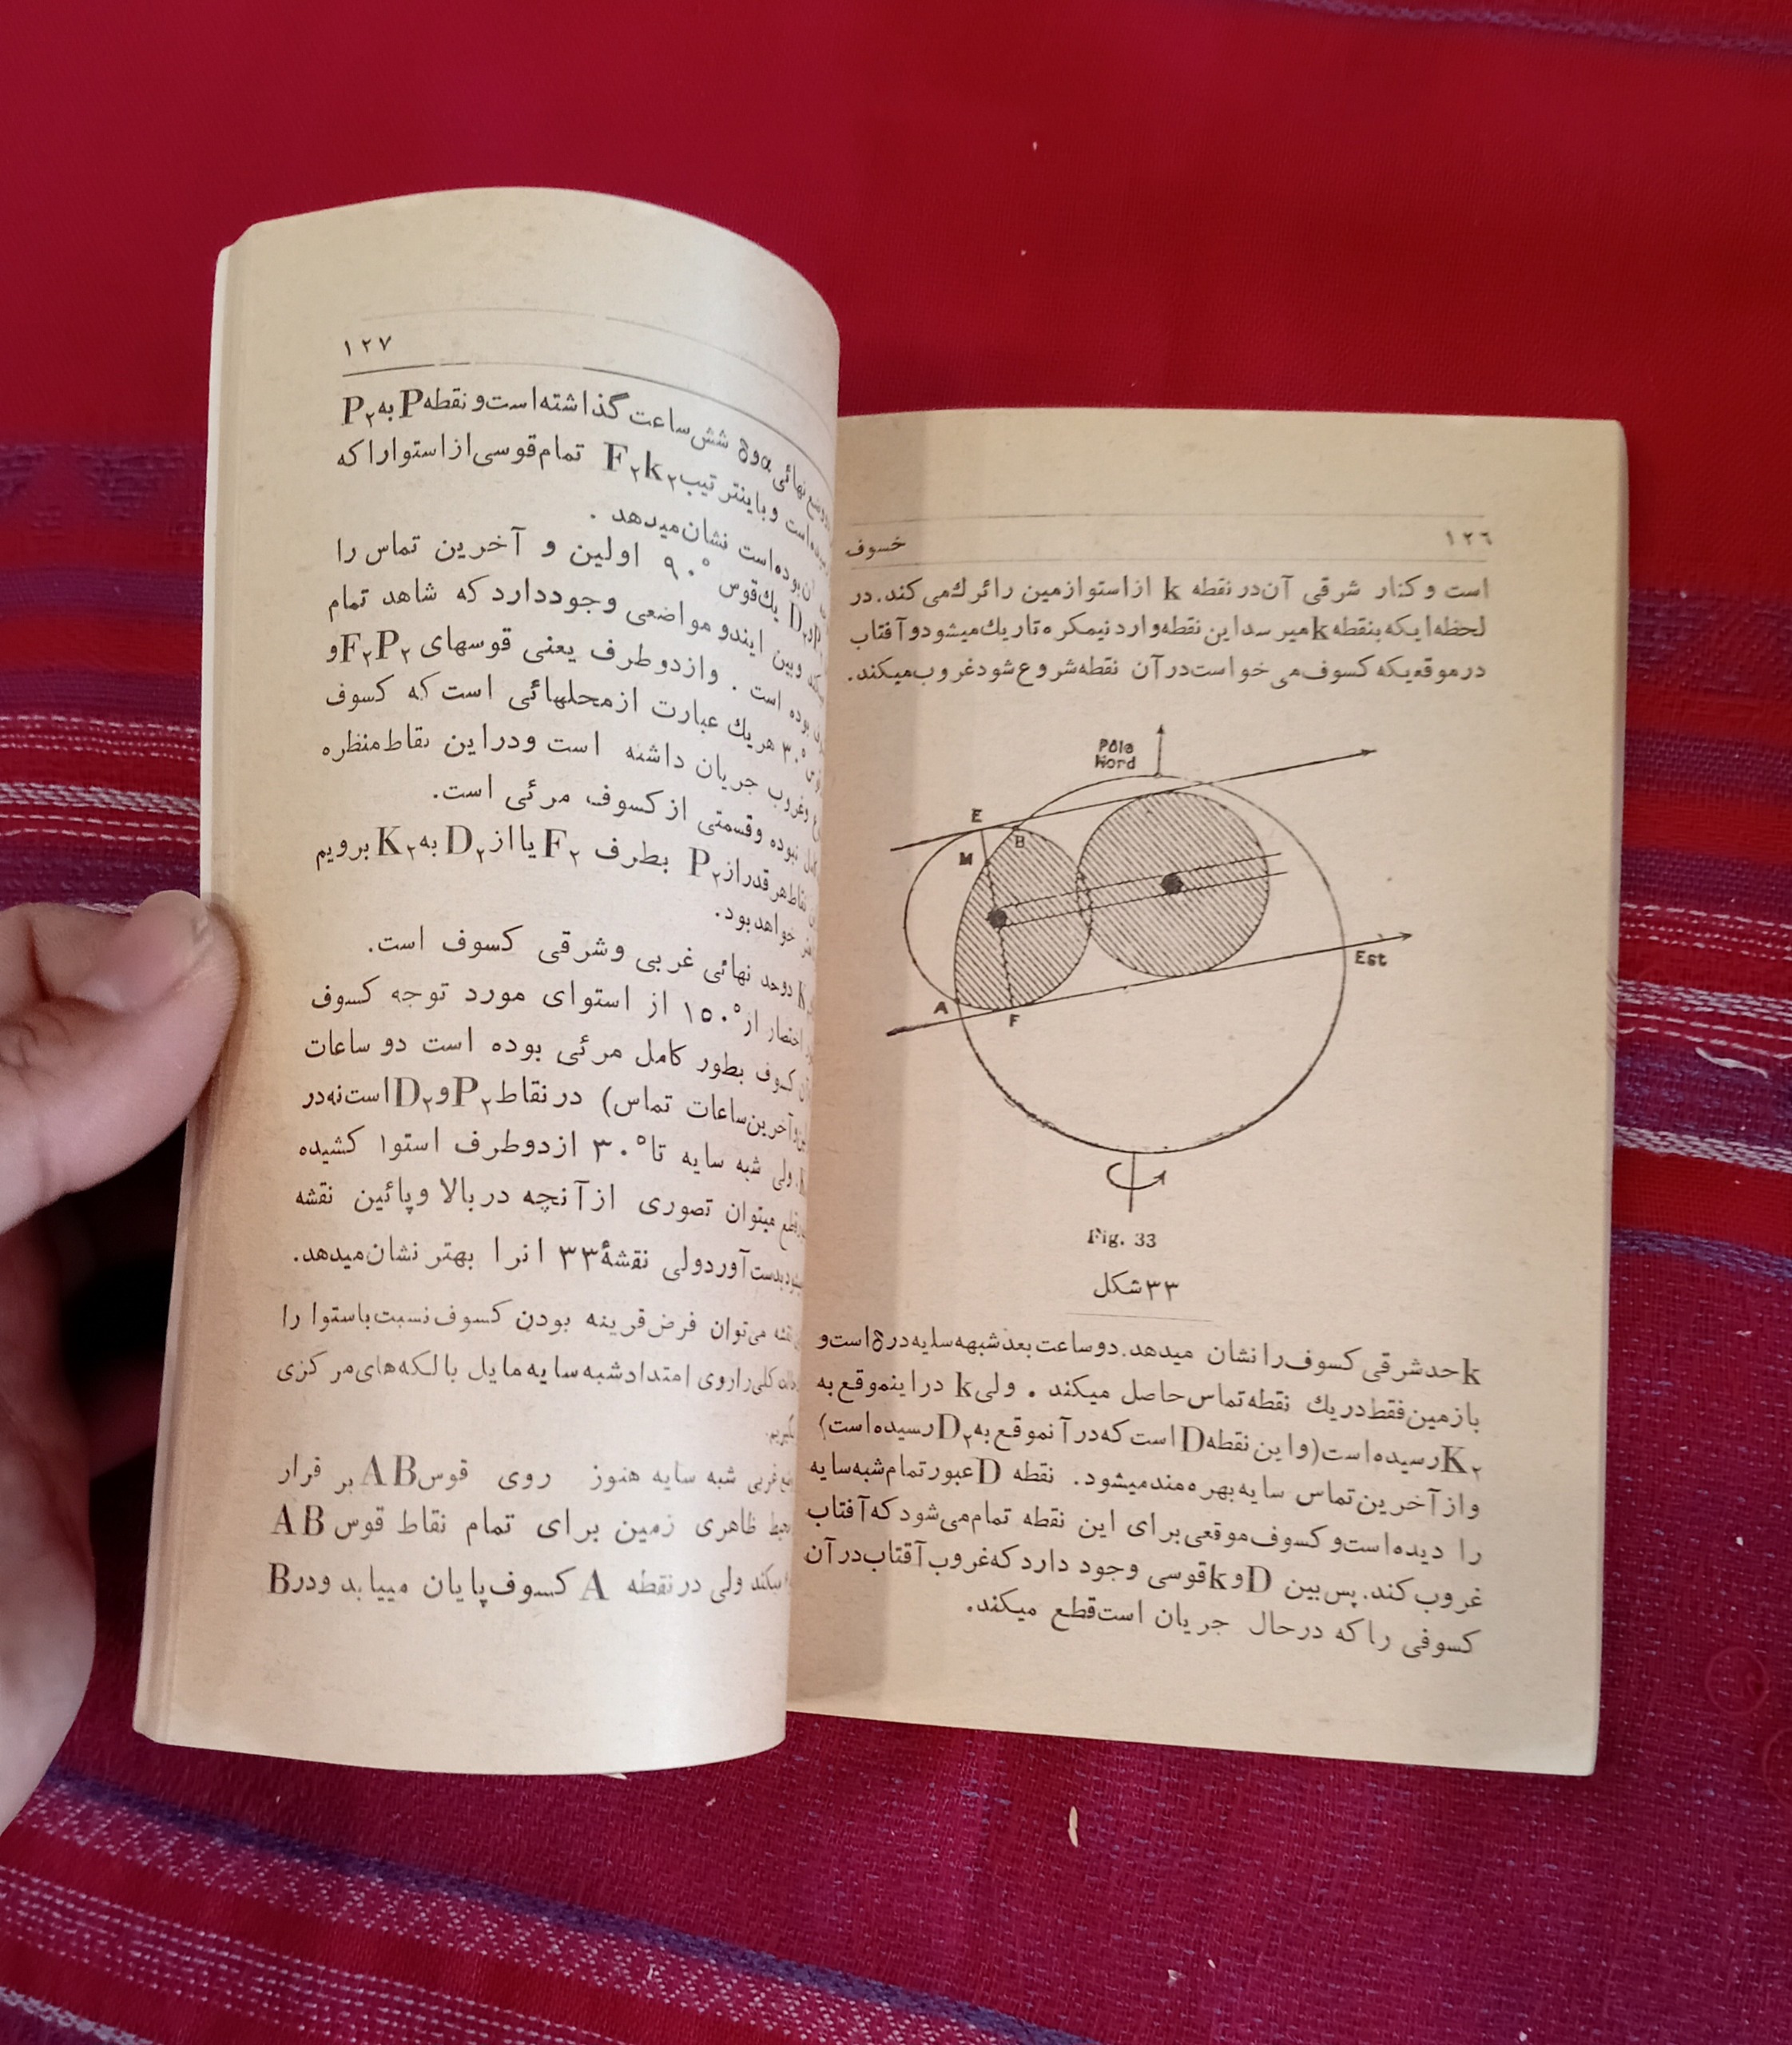 ١٢٦
خسوف
است و كنار شرقی آن در نقطه k از استوا زمین را ترك می كند. در
لحظه ایكه بنقطه k میرسد این نقطه وارد نیمكره تاریك میشود و آفتاب
در موقعیكه كسوف می خواست در آن نقطه شروع شود غروب میكند.
Pôle
Nord
E
B
M
A
F
Est
Fig. 33
٣٣ شكل
k حد شرقی كسوف را نشان میدهد. دو ساعت بعد شبهه سایه در δ است و
با زمین فقط در یك نقطه تماس حاصل میكند. ولی k در اینموقع به
K٢ رسیده است (و این نقطه D است كه در آنموقع به D٢ رسیده است)
و از آخرین تماس سایه بهره مند میشود. نقطه D عبور تمام شبه سایه
را دیده است و كسوف موقعی برای این نقطه تمام می شود كه آفتاب
غروب كند. پس بین D و k قوسی وجود دارد كه غروب آفتاب در آن
كسوفی را كه در حال جریان است قطع میكند.
١٢٧
نهائی α و δ شش ساعت گذاشته است و نقطه P به P٢
است و باینترتیب F٢k٢ تمام قوسی از استوا را كه
بوده است نشان میدهد.
D٢P٢ یك قوس ٩٠° اولین و آخرین تماس را
و بین ایندو مواضعی وجود دارد كه شاهد تمام
بوده است. و از دو طرف یعنی قوسهای F٢P٢ و
٣٠° هر یك عبارت از محلهائی است كه كسوف
و غروب جریان داشته است و در این نقاط منظره
نبوده و قسمتی از كسوف مرئی است.
نقاط هر قدر از P٢ بطرف F٢ یا از D٢ به K٢ برویم
خواهد بود.
دو حد نهائی غربی و شرقی كسوف است.
اختصار از ١٥٠° از استوای مورد توجه كسوف
كسوف بطور كامل مرئی بوده است دو ساعات
و آخرین ساعات تماس) در نقاط P٢ و D٢ است نه در
ولی شبه سایه تا ٣٠° از دو طرف استوا كشیده
میتوان تصوری از آنچه در بالا و پائین نقشه
بدست آورد ولی نقشهٔ ٣٣ انرا بهتر نشان میدهد.
نقشه می توان فرض قرینه بودن كسوف نسبت باستوا را
كلی را روی امتداد شبه سایه مایل با لكه های مركزی
بگیریم.
غربی شبه سایه هنوز روی قوس AB بر قرار
محیط ظاهری زمین برای تمام نقاط قوس AB
میكند ولی در نقطه A كسوف پایان مییابد و در B